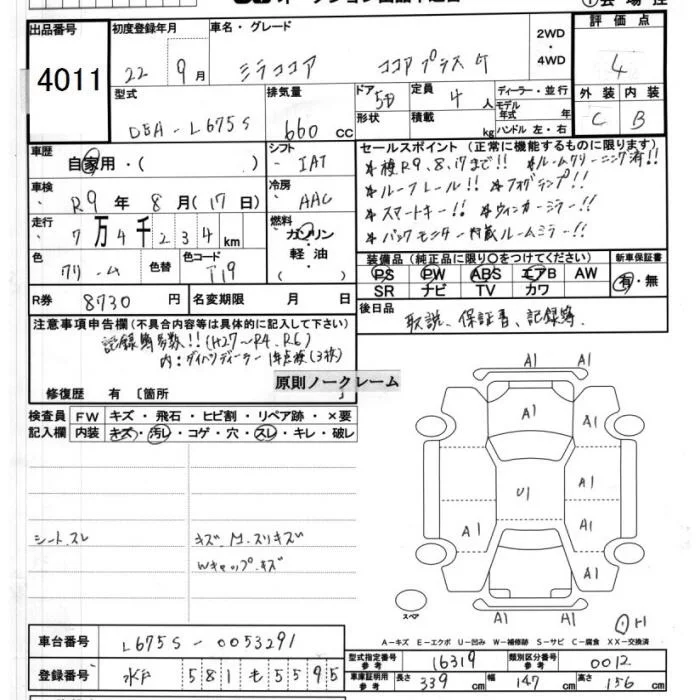 出品番号 4011
初度登録年月 22年 9月
車名・グレード ミラココア ココアプラスG
2WD・4WD
評価点 4
外装 C 内装 B
型式 DBA-L675S
排気量 660cc
ドア 5D
形状
定員 4人
積載 kg
ディーラー・並行
モデル年式 年
ハンドル 左・右
車歴 自家用・( )
シフト IAT
セールスポイント (正常に機能するものに限ります)
*検R9,8,17まで!! *ルームクリーニング済!!
*ルーフレール!! *フォグランプ!!
*スマートキー!! *ウィンカーミラー!!
*バックモニター内蔵ルームミラー!!
車検 R9年 8月(17日)
冷房 AAC
走行 7万4千234km
燃料 ガソリン・軽油・( )
色 クリーム
色替
色コード T19
装備品(純正品に限り○をつけてください)
PS PW ABS エアB AW
SR ナビ TV カワ
新車保証書 有・無
R券 8730円
名変期限 月 日
後日品 取説、保証書、記録簿.
注意事項申告欄(不具合内容等は具体的に記入して下さい)
記録簿多数!!(H27~R4,R6)
内:ダイハツディーラー 1年点検(3枚)
原則ノークレーム
修復歴 有〔箇所 〕
検査員記入欄
FW キズ・飛石・ヒビ割・リペア跡・×要
内装 キズ・汚レ・コゲ・穴・スレ・キレ・破レ
シート.スレ
キズ.M.スリキズ
Wキャップ.キズ
A1 A1
A1 A1
U1 A1
A1 A1
A1
A1 A1
スペア
A-キズ E-エクボ U-凹み W-補修跡 S-サビ C-腐食 XX-交換済
車台番号 L675S-0053291
型式指定番号参考 16319
類別区分番号参考 0012
登録番号 水戸 581 も 5595
車庫証明用参考 長さ 339cm 幅 147cm 高さ 156cm